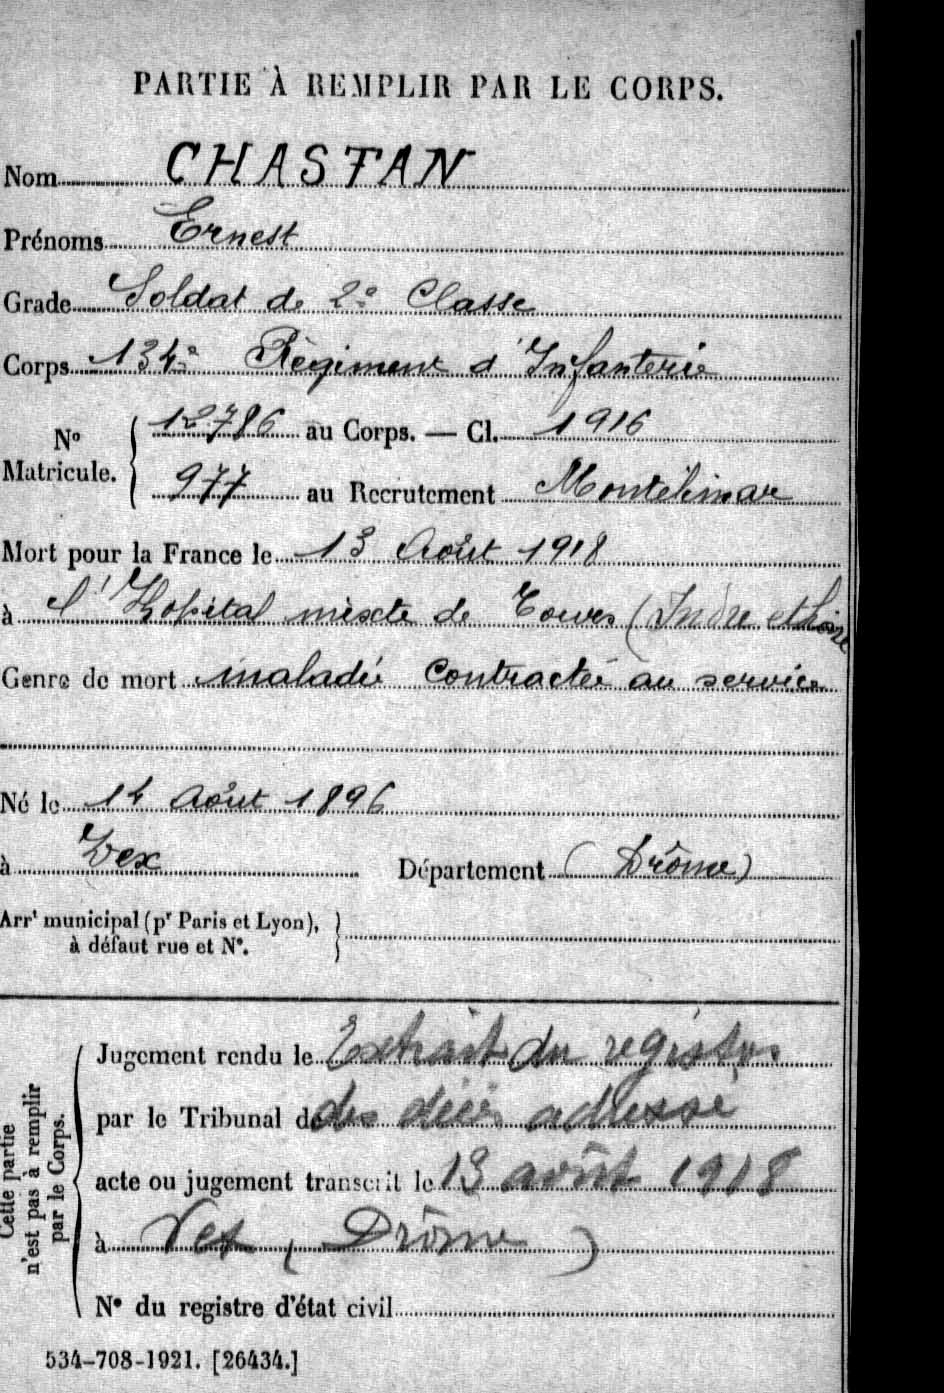 PARTIE À REMPLIR PAR LE CORPS.
Nom CHASTAN
Prénoms Ernest
Grade Soldat de 2e Classe
Corps 134e Régiment d'Infanterie
No Matricule. 12786 au Corps. — Cl. 1916
977 au Recrutement Montélimar
Mort pour la France le 13 Août 1918
à l'Hopital mixte de Tours (Indre et Loire
Genre de mort maladie contractée au service
Né le 14 Août 1896
à Département (Drôme)
Arrt municipal (pr Paris et Lyon),
à défaut rue et No.
Cette partie
n'est pas à remplir
par le Corps.
Jugement rendu le Extrait du registre
par le Tribunal de des décès adressé
acte ou jugement transcrit le 13 août 1918
à (Drôme)
No du registre d'état civil
534-708-1921. [26434.]